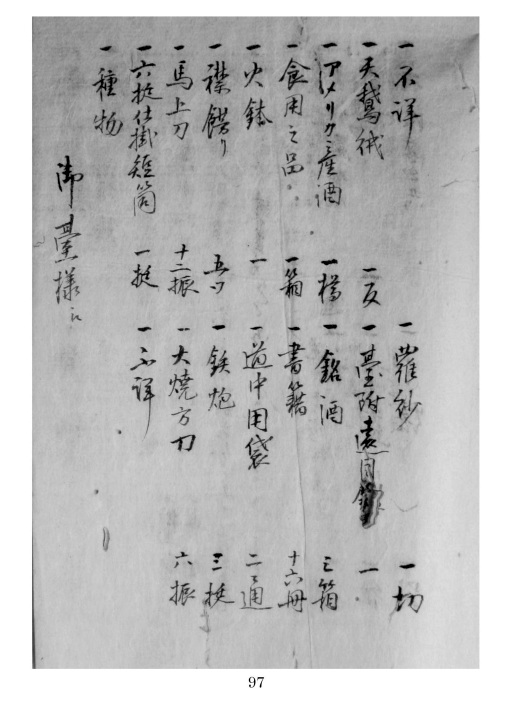 一 不詳 一 羅紗 一切
一 天鵞絨 一反 一 臺附遠目鏡 一
一 アメリカ産酒 一樽 一 銘酒 三箱
一 食用之品 一箱 一 書籍 十六冊
一 火鉢 一 一 道中用袋 二通
一 襟餝り 五ツ 一 鉄炮 三挺
一 馬上刀 十二振 一 大焼方刀 六振
一 六挺仕掛短筒 一挺 一 不詳
一 種物
御臺様江
97